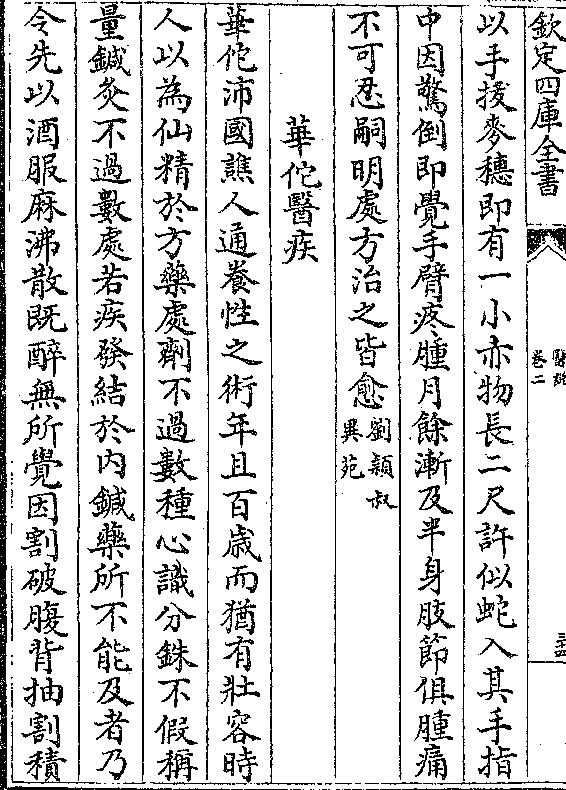 欽定四庫全書
醫說
卷二
三十四
以手援麥穗即有一小赤物長二尺許似蛇入其手指
中因驚倒即覺手臂疼腫月餘漸及半身肢節俱腫痛
不可忍嗣明處方治之皆愈劉穎叔
異苑
華佗醫疾
華佗沛國譙人通養性之術年且百歲而猶有壯容時
人以為仙精於方藥處劑不過數種心識分銖不假稱
量鍼灸不過數處若疾發結於內鍼藥所不能及者乃
令先以酒服麻沸散既醉無所覺因割破腹背抽割積